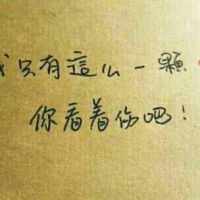 我只有這么一顆
你看着伤吧！